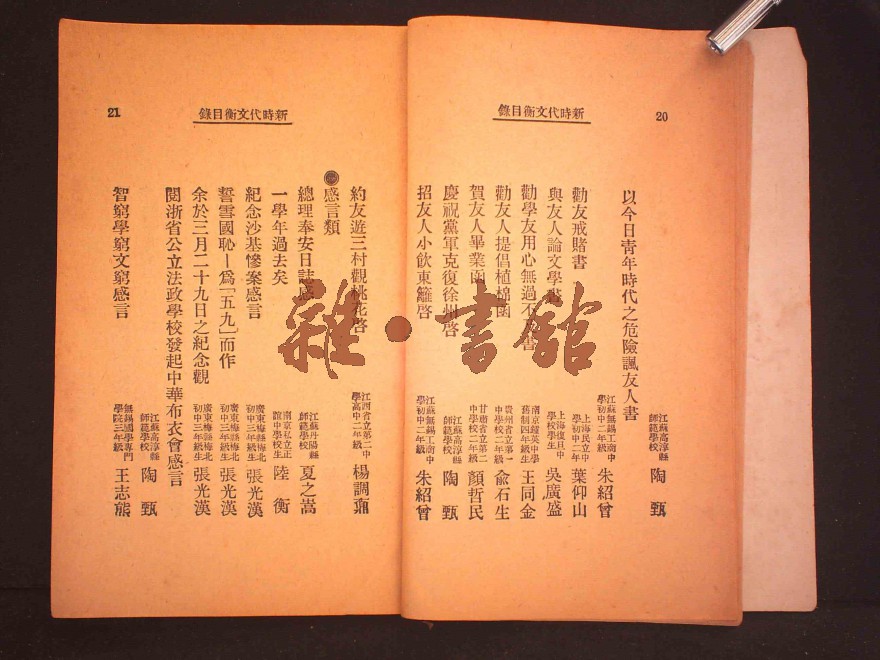 新時代文衡目錄
20
江蘇高淳縣師範學校 陶甄
以今日靑年時代之危險諷友人書
江蘇無錫工商中學初中二年級 朱紹曾
勸友戒賭書 上海民立中學初中二年 葉仰山
與友人論文學書 上海復旦中學校學生 吳廣盛
勸學友用心無過不及書 南京鍾英中學舊制四年級生 王同金
勸友人提倡植棉函 貴州省立第一中學校二年級 兪石生
賀友人畢業函 甘肅省立第二中學校二年級 顏哲民
慶祝黨軍克復徐州啓 江蘇高淳縣師範學校 陶甄
招友人小飲東籬啓 江蘇無錫工商中學初中二年級 朱紹曾
新時代文衡目錄
21
約友遊三村觀桃花啓 江西省立第二中學高中二年級 楊調鼐
感言類
總理奉安日誌感 江蘇丹陽縣師範學校 夏之嵩
一學年過去矣 南京私立正誼中學校生 陸衡
紀念沙基慘案感言 廣東梅縣梅北初中三年級生 張光漢
誓雪國恥—爲「五九」而作 廣東梅縣梅北初中三年級生 張光漢
余於三月二十九日之紀念觀 廣東梅縣梅北初中三年級生 張光漢
閱浙省公立法政學校發起中華布衣會感言
江蘇高淳縣師範學校 陶甄
智窮學窮文窮感言 無錫國學專門學院三年級 王志熊
雜·書館